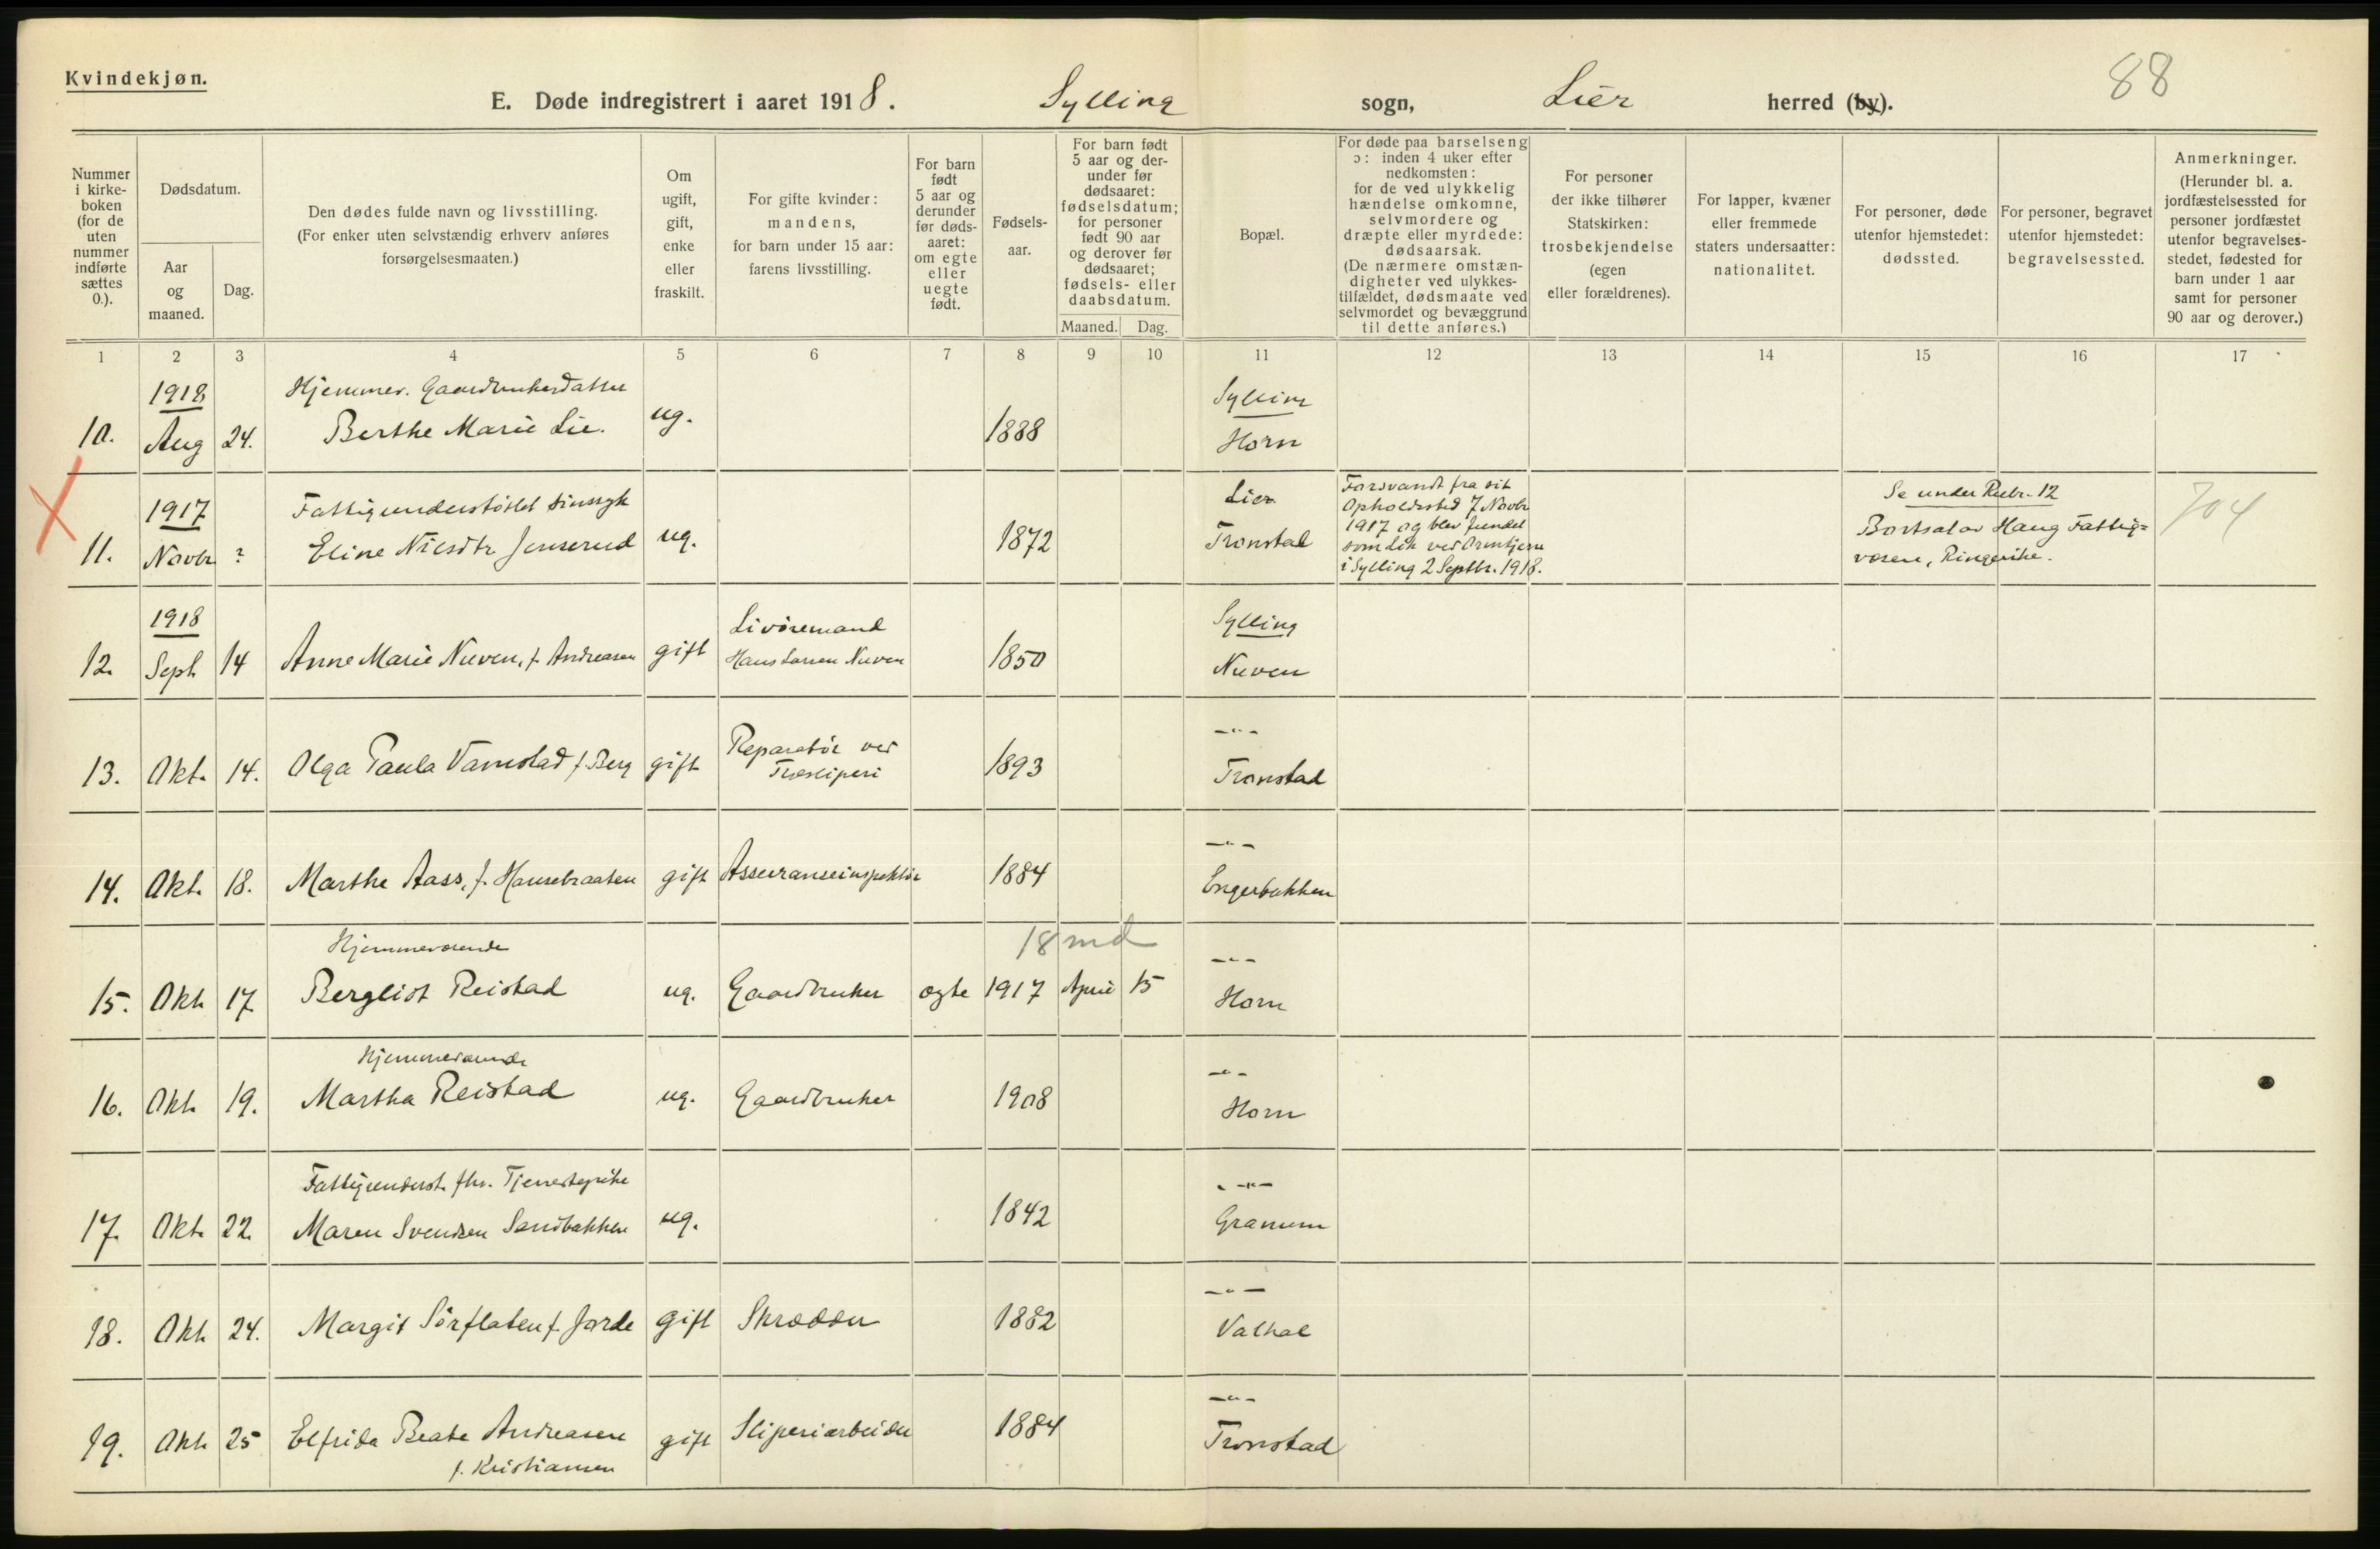 Kvindekjøn.
E. Døde indregistrert i aaret 1918. Sylling sogn, Lier herred (by).
88
Nummer i kirkeboken (for de uten nummer indførte sættes 0.).
Dødsdatum.
Aar og maaned.
Dag.
Den dødes fulde navn og livsstilling.
(For enker uten selvstændig erhverv anføres forsørgelsesmaaten.)
Om ugift, gift, enke eller fraskilt.
For gifte kvinder: mandens, for barn under 15 aar: farens livsstilling.
For barn født 5 aar og derunder før dødsaaret: om egte eller uegte født.
Fødselsaar.
For barn født 5 aar og derunder før dødsaaret: fødselsdatum; for personer født 90 aar og derover før dødsaaret; fødsels- eller daabsdatum.
Maaned. Dag.
Bopæl.
For døde paa barselseng ɔ: inden 4 uker efter nedkomsten: for de ved ulykkelig hændelse omkomne, selvmordere og dræpte eller myrdede: dødsaarsak. (De nærmere omstændigheter ved ulykkestilfældet, dødsmaate ved selvmordet og bevæggrund til dette anføres.)
For personer der ikke tilhører Statskirken: trosbekjendelse (egen eller forældrenes).
For lapper, kvæner eller fremmede staters undersaatter: nationalitet.
For personer, døde utenfor hjemstedet: dødssted.
For personer, begravet utenfor hjemstedet: begravelsessted.
Anmerkninger. (Herunder bl. a. jordfæstelsessted for personer jordfæstet utenfor begravelsesstedet, fødested for barn under 1 aar samt for personer 90 aar og derover.)
1 2 3 4 5 6 7 8 9 10 11 12 13 14 15 16 17
1918 Hjemmev. Gaardbrukerdatter Sylling
10. Aug 24. Berthe Marie Lie. ug. 1888 Horn
1917 Fattigunderstöttet sinssyk Lier
11. Novbr ? Eline Nilsdtr Jenserud ug. 1872 Tronstad
Forsvandt fra sit
Opholdssted 7 Novbr
1917 og blev fundet
som Lik ved
i Sylling 2 Septbr. 1918.
Se under Rubr. 12
Bortsat av Haug Fattig-
væsen, Ringerike.
704
1918 Livöremand Sylling
12. Sept. 14 Anne Marie Nuven, f. Andreasen gift Hans Larsen Nuven 1850 Nuven
Reparatör ved -"-
13. Okt. 14. Olga Paula Vamstad f. Berg gift Træsliperi 1893 Tronstad
-"-
14. Okt. 18. Marthe Aass, f. Hansebraaten gift Assuranseinspektör 1884 Engerbakken
Hjemmeværende 18 md -"-
15. Okt. 17 Bergliot Reistad ug. Gaardbruker egte 1917 April 15 Horn
Hjemmeværende -"-
16. Okt. 19. Martha Reistad ug. Gaardbruker 1908 Horn
Fattigunderst. fhv. Tjenestepike -"-
17. Okt. 22. Maren Svendsen Sandbakken ug. 1842 Granum
-"-
18. Okt. 24. Margit Sörflaten f. Jorde gift Skrædder 1882 Valhal
-"-
19. Okt. 25 Elfrida Beate Andreasen gift Sliperiarbeider 1884 Tronstad
f. Kristiansen